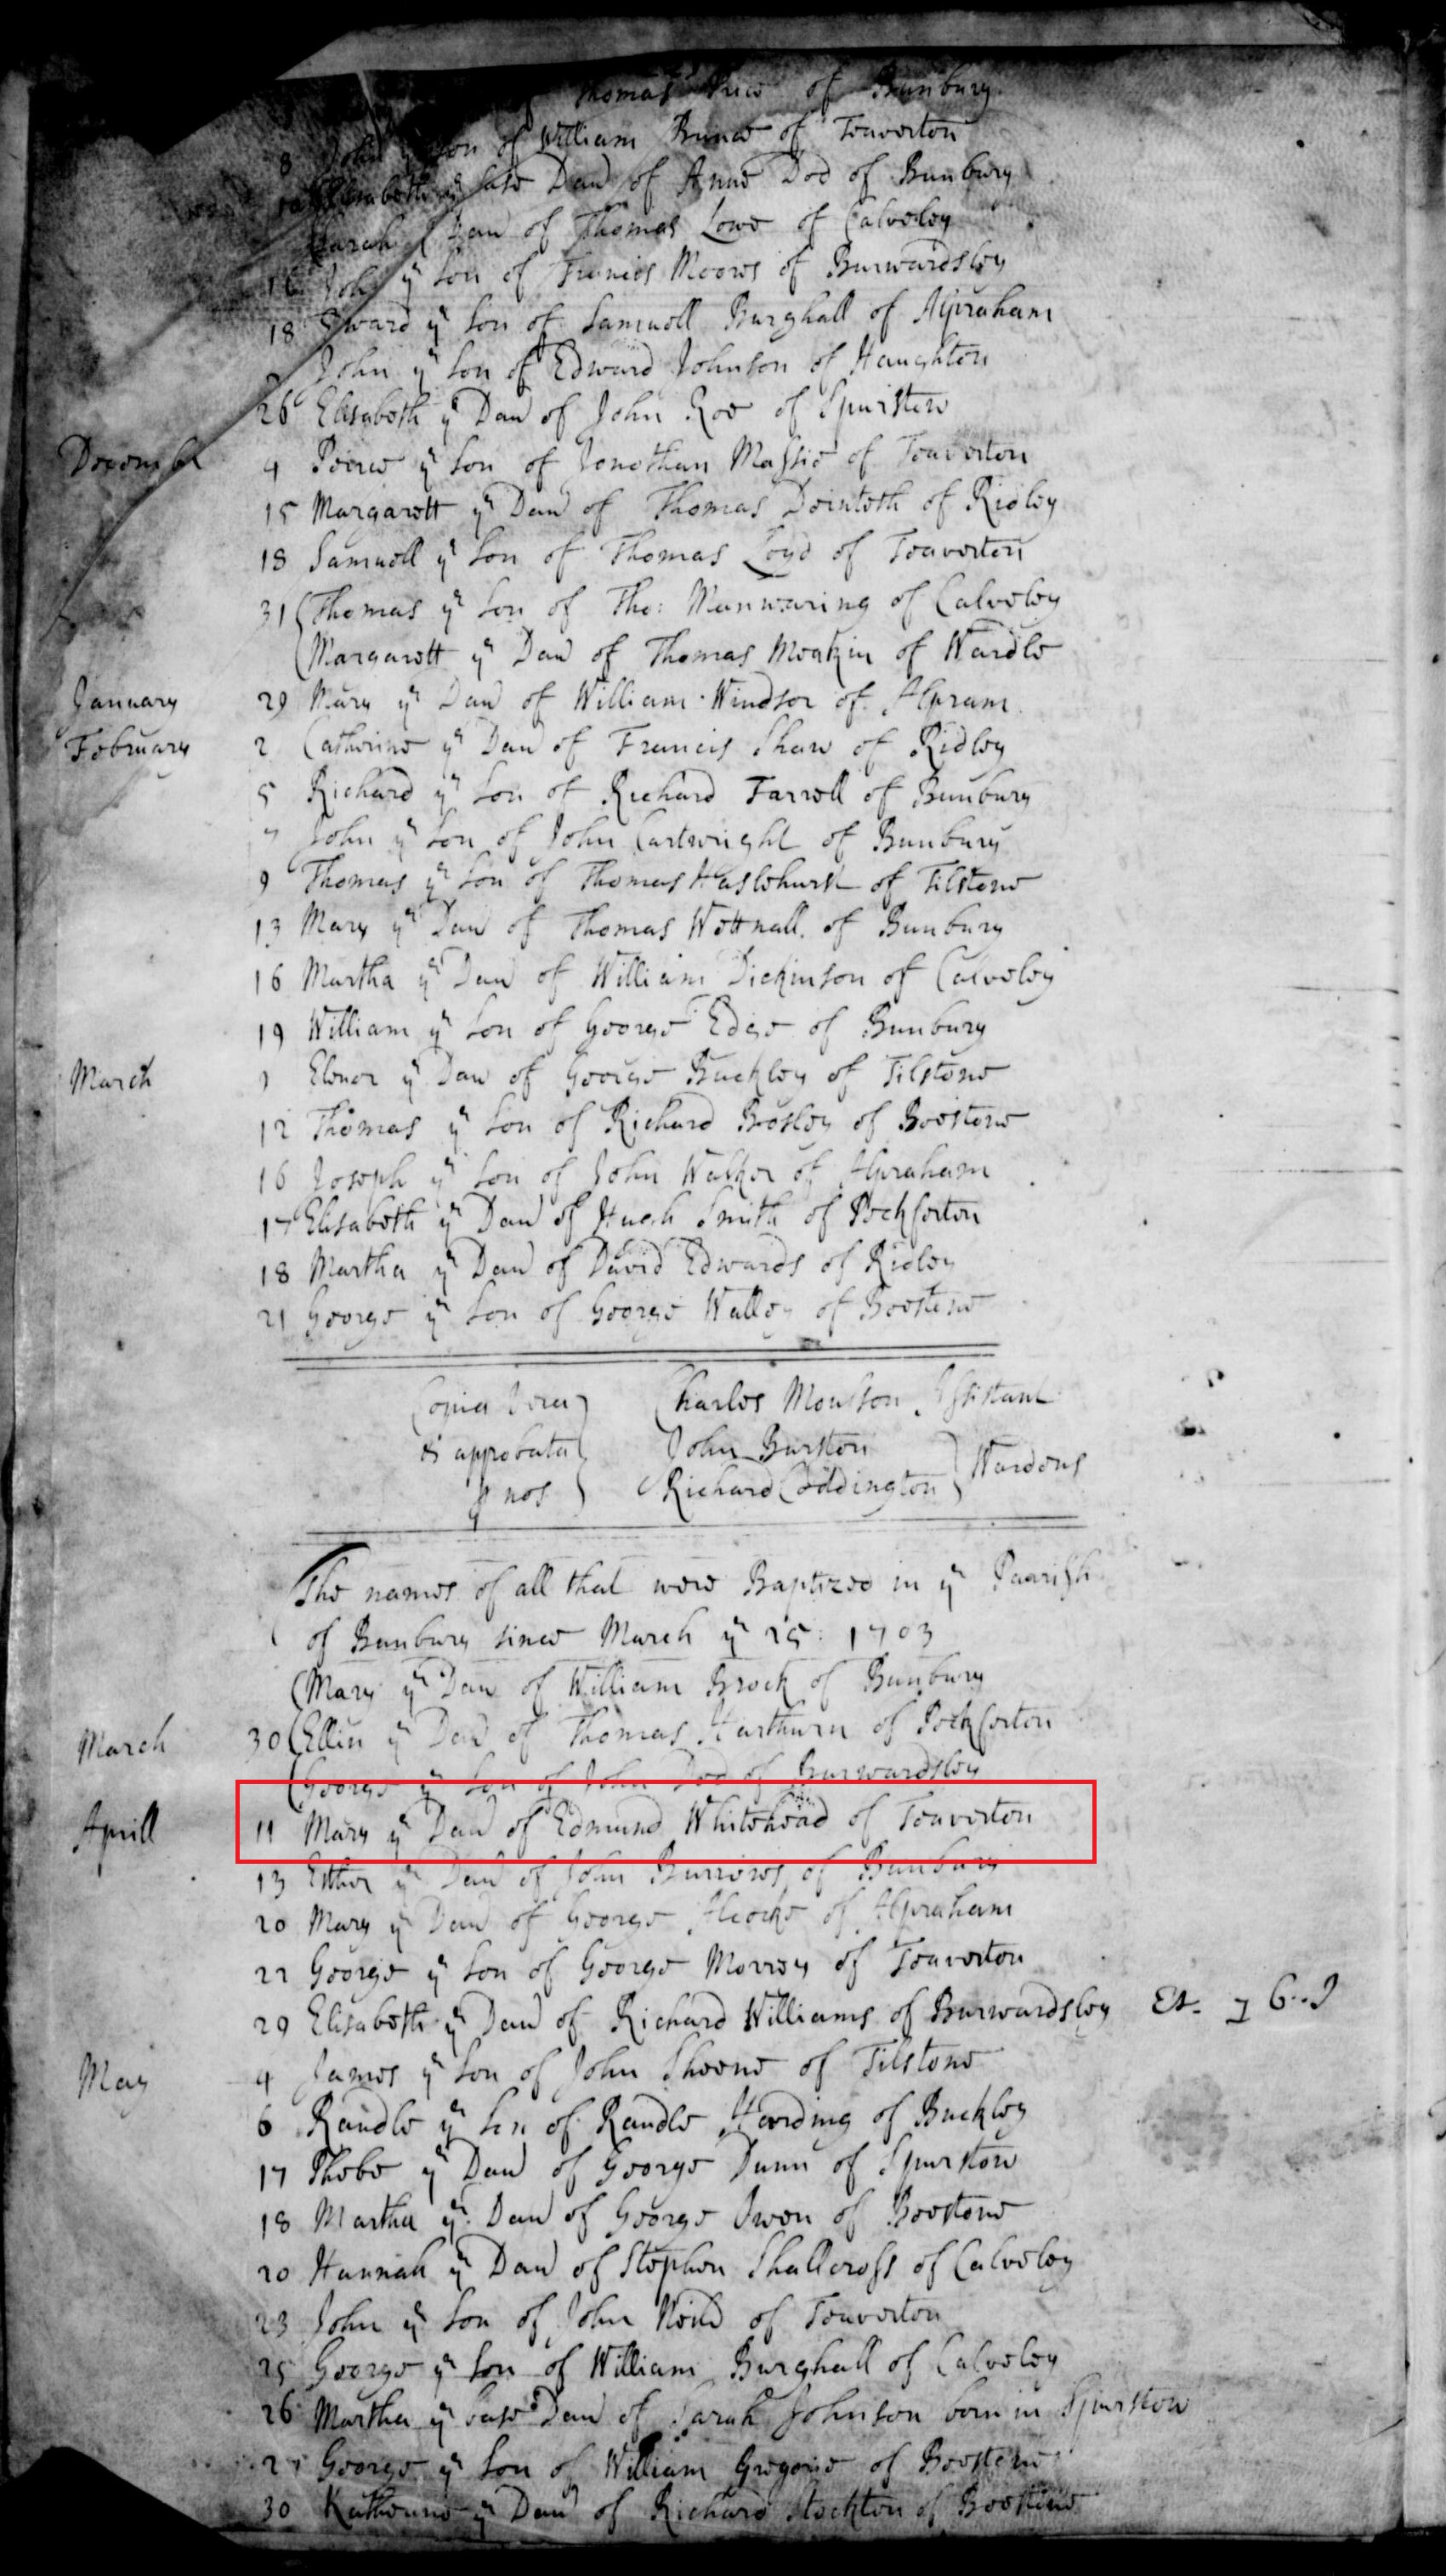 Thomas of Bunbury
8 John son of William Bunce of Teaverton
Elisabeth yᵉ base Dau of Anne Dod of Bunbury
Sarah Dau of Thomas Lowe of Calveley
16 John yᵉ Son of Francis Moores of Burwardsley
18 Edward yᵉ Son of Samuell Burghall of Alpraham
John yᵉ Son of Edward Johnson of Haughton
26 Elisabeth yᵉ Dau of John Roe of Spursten
Decemb 4 Peerce yᵉ Son of Jonathan Massie of Teaverton
15 Margarett yᵉ Dau of Thomas of Ridley
18 Samuell yᵉ Son of Thomas Loyd of Teaverton
31 Thomas yᵉ Son of Tho: Manwaring of Calveley
Margarett yᵉ Dau of Thomas Meakin of Wardle
January 29 Mary yᵉ Dau of William Windsor of Alpram
February 2 Catherine yᵉ Dau of Francis Shaw of Ridley
5 Richard yᵉ Son of Richard Farrell of Bunbury
7 John yᵉ Son of John Cartwright of Bunbury
9 Thomas yᵉ Son of Thomas Haslehurst of Tilstone
13 Mary yᵉ Dau of Thomas Wettnall of Bunbury
16 Martha yᵉ Dau of William Dickinson of Calveley
19 William yᵉ Son of George Edge of Bunbury
March 1 Elenor yᵉ Dau of George Buckley of Tilstone
12 Thomas yᵉ Son of Richard Bosley of Beestone
16 Joseph yᵉ Son of John Walker of Alpraham
17 Elisabeth yᵉ Dau of Hugh Smith of Peckforton
18 Martha yᵉ Dau of David Edwards of Ridley
21 George yᵉ Son of George Walley of Beestone
Copia vera Charles Moulson Assistant
et approbata John Burston
p nos Richard Coddington Wardens
The names of all that were Baptized in yᵉ Parrish
of Bunbury since March yᵉ 25: 1703
Mary yᵉ Dau of William Brock of Bunbury
March 30 Ellin yᵉ Dau of Thomas Harthurn of Peckforton
George yᵉ Son of John Dod of Burwardsley
Aprill 11 Mary yᵉ Dau of Edmund Whitehead of Teaverton
13 Esther yᵉ Dau of John Burrows of Bunbury
20 Mary yᵉ Dau of George Alcocke of Alpraham
22 George yᵉ Son of George Morrey of Teaverton
29 Elisabeth yᵉ Dau of Richard Williams of Burwardsley
May 4 James yᵉ Son of John Sheene of Tilstone
6 Randle yᵉ Son of Randle Harding of Buckley
17 Phebe yᵉ Dau of George Dunn of Spurstow
18 Martha yᵉ Dau of George Owen of Beestone
20 Hannah yᵉ Dau of Stephen Shallcross of Calveley
23 John yᵉ Son of John Neild of Teaverton
25 George yᵉ Son of William Burghall of Calveley
26 Martha yᵉ base Dau of Sarah Johnson born in Spurstow
27 George yᵉ Son of William Gregorie of Beestone
30 Katherine yᵉ Dau of Richard Stockton of Beestone